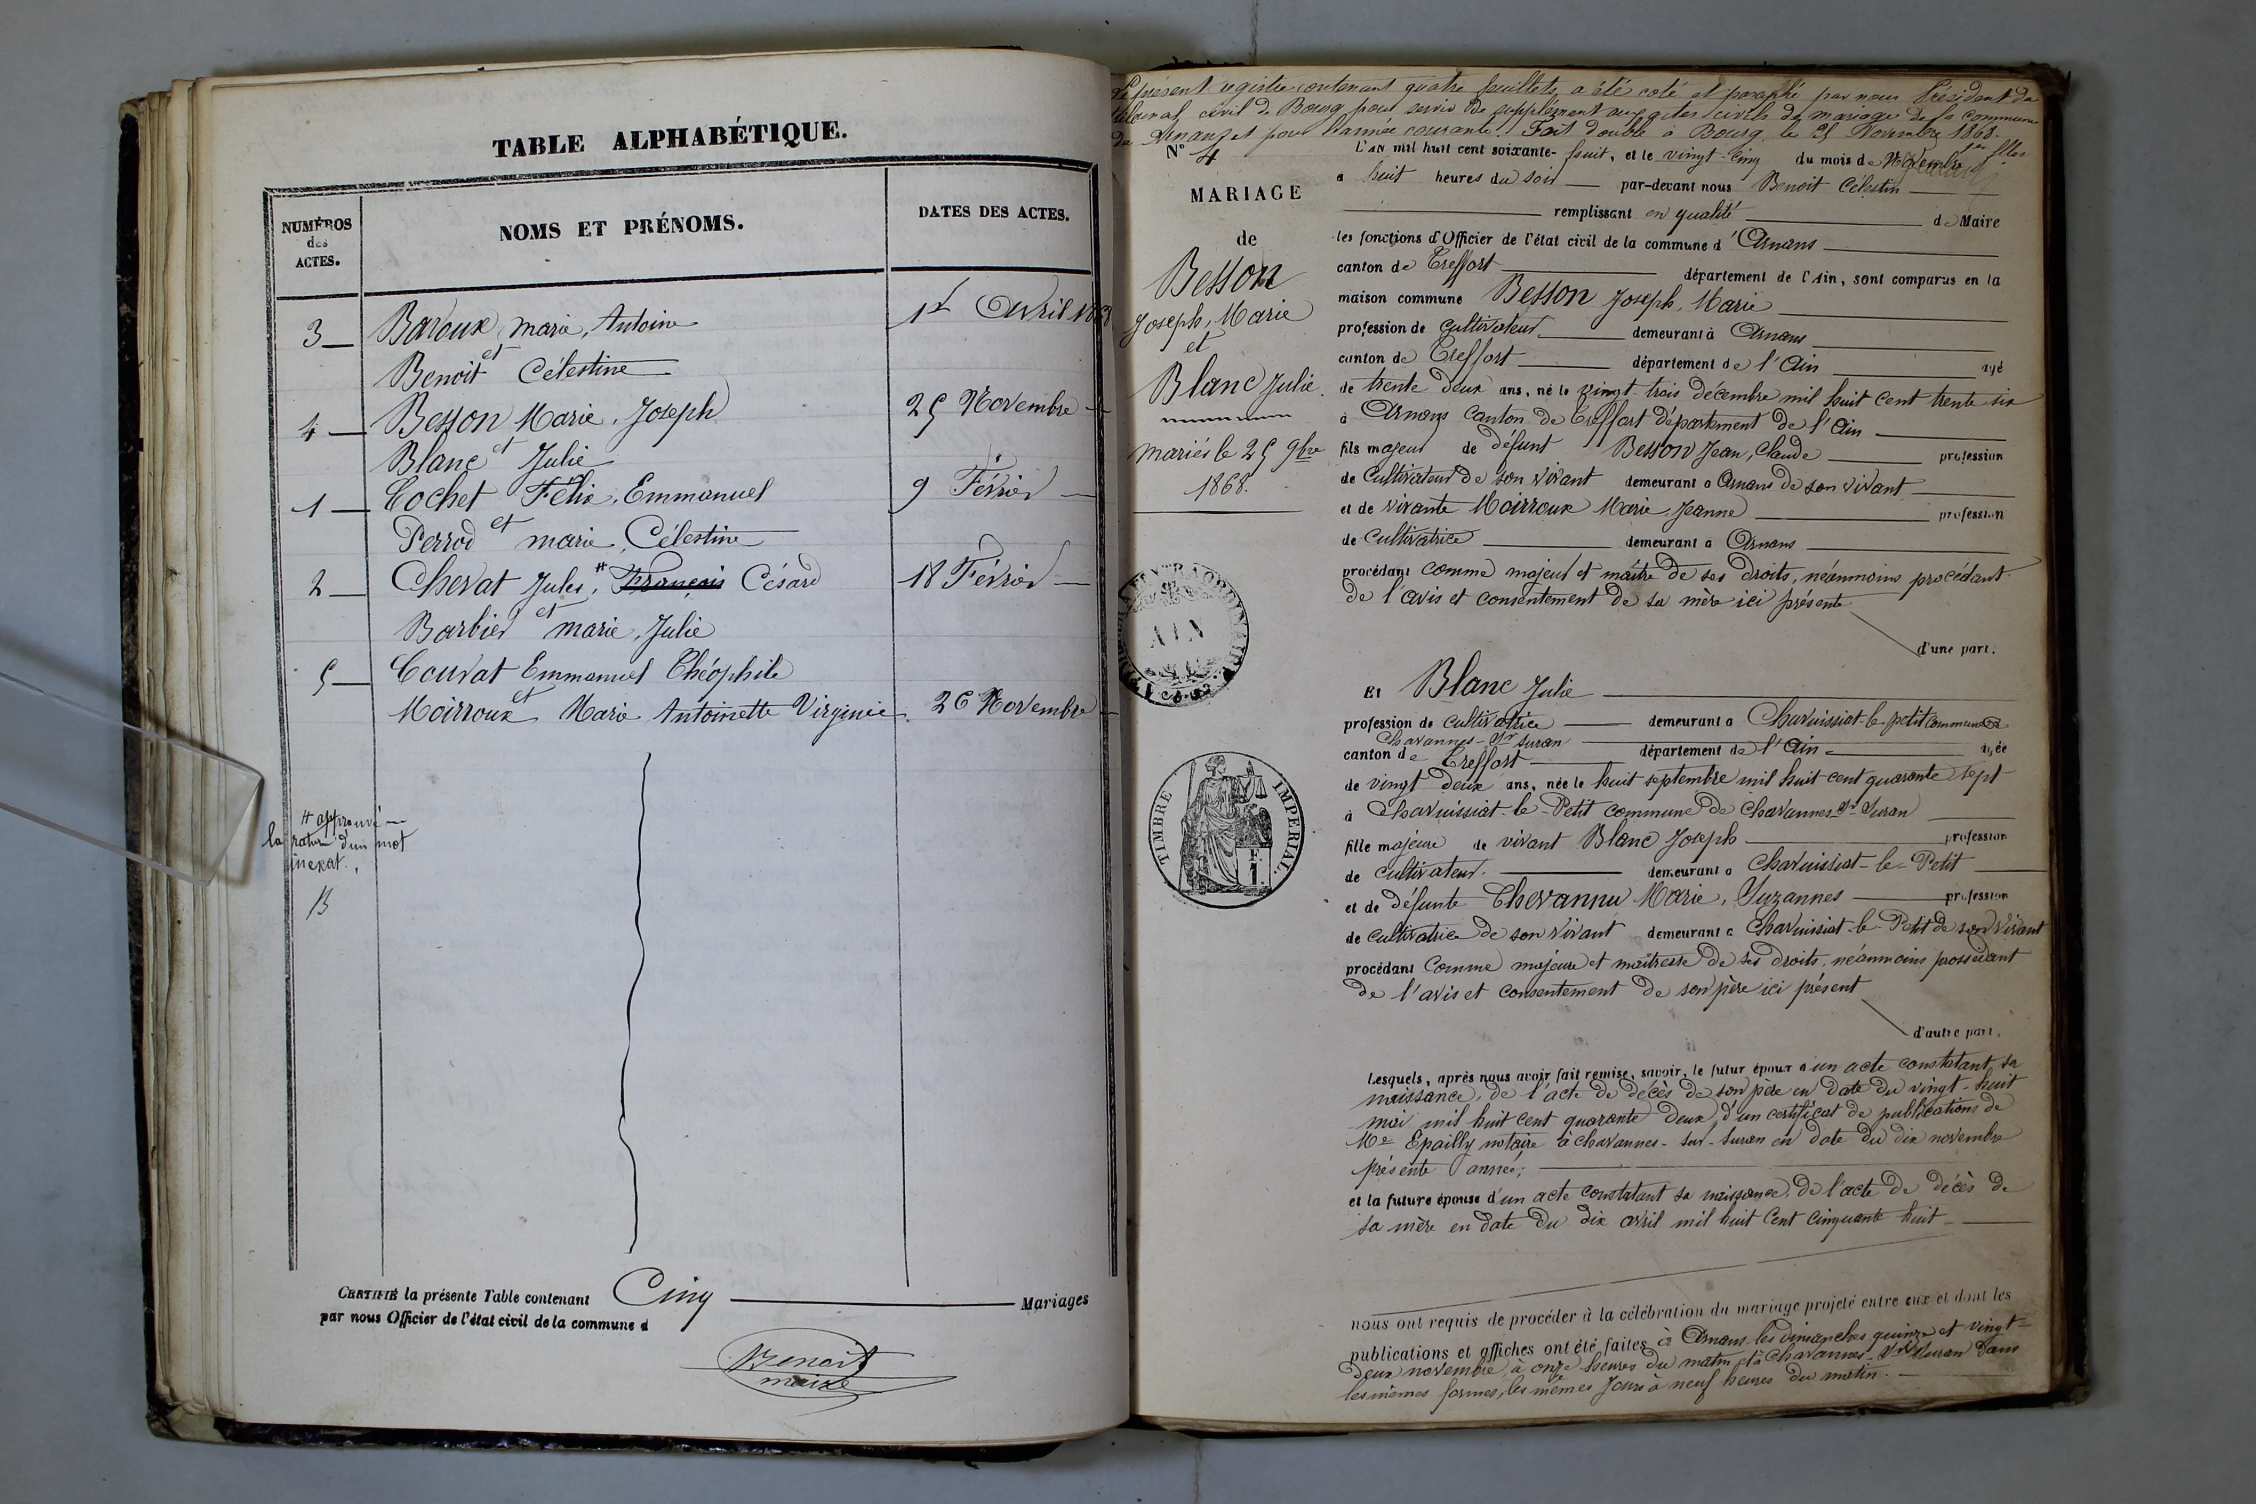 TABLE ALPHABÉTIQUE.
NUMÉROS
des
ACTES.
NOMS ET PRÉNOMS.
DATES DES ACTES.
3 Baroux, marie, Antoine 1er Avril 1868
et
Benoit Célestine
4 Besson Marie, Joseph 25 Novembre
et
Blanc Julie
1 Cochet Félix, Emmanuel 9 Février
et
Perrod marie, Célestine
2 Chevat Jules, # Français César 18 Février
et
Barbier marie, Julie
5 Couvat Emmanuel Théophile
et
Moirroux Marie Antoinette Virginie 26 Novembre
# approuvé
la rature d'un mot
inexat.
B
CERTIFIÉ la présente Table contenant Cinq Mariages
par nous Officier de l'état civil de la commune d
Benoit
maire
Le présent registre contenant quatre feuillets, a été coté et paraphé par nous Président du
tribunal civil de Bourg pour servir de supplément aux actes civils de mariage de la commune
pour l'année courante. Fait double à Bourg, le 21 Novembre 1868.
N° 4
MARIAGE
de
Besson
Joseph, Marie
et
Blanc Julie.
mariés le 25 9bre
1868.
AIN
TIMBRE IMPÉRIAL
L'AN mil huit cent soixante-huit, et le vingt-cinq du mois de Novembre
a huit heures du soir par-devant nous Benoit Célestin
remplissant en qualité de Maire
les fonctions d'Officier de l'état civil de la commune d'Arnans
canton de Treffort département de l'Ain, sont comparus en la
maison commune Besson Joseph, Marie
profession de cultivateur demeurant à Arnans
canton de Treffort département de l'Ain agé
de trente deux ans, né le vingt-trois décembre mil huit cent trente six
à Arnans canton de Treffort département de l'Ain
fils majeur de défunt Besson Jean, Claude profession
de Cultivateur de son vivant demeurant a Arnans de son vivant
et de vivante Moirroux Marie, Jeanne profession
de Cultivatrice demeurant a Arnans
procédant comme majeur et maître de ses droits, néanmoins procédant
de l'avis et consentement de sa mère ici présente
d'une part.
Et Blanc Julie
profession de cultivatrice demeurant a Chavuissiat-le-petit commune de
Chavannes-sr-Suran
canton de Treffort département de l'Ain agée
de vingt deux ans, née le huit septembre mil huit cent quarante sept
à Chavuissiat-le-Petit commune de Chavannes-sr-Suran
fille majeure de vivant Blanc Joseph profession
de cultivateur. demeurant a Chavuissiat-le-Petit
et de défunte Chevannu Marie, Suzannes profession
de cultivatrice de son vivant demeurant a Chavuissiat-le-Petit de son vivant
procédant Comme majeure et maîtresse de ses droits, néanmoins prossédant
de l'avis et consentement de son père ici présent
d'autre part.
Lesquels, après nous avoir fait remise, savoir, le futur époux d'un acte constatant sa
naissance, de l'acte de décès de son père en date du vingt-huit
mai mil huit cent quarante deux, d'un certificat de publications de
Me Epailly notaire à Chavannes-sur-Suran en date du dix novembre
présente année;
et la future épouse d'un acte constatant sa naissance, de l'acte de décès de
sa mère en date du dix avril mil huit Cent Cinquante huit
nous ont requis de procéder à la célébration du mariage projeté entre eux et dont les
publications et affiches ont été faites à Arnans les dimanches quinze et vingt-
deux novembre, à onze heures du matin et à Chavannes-sr-Suran dans
les mêmes formes, les mêmes jours à neuf heures du matin.